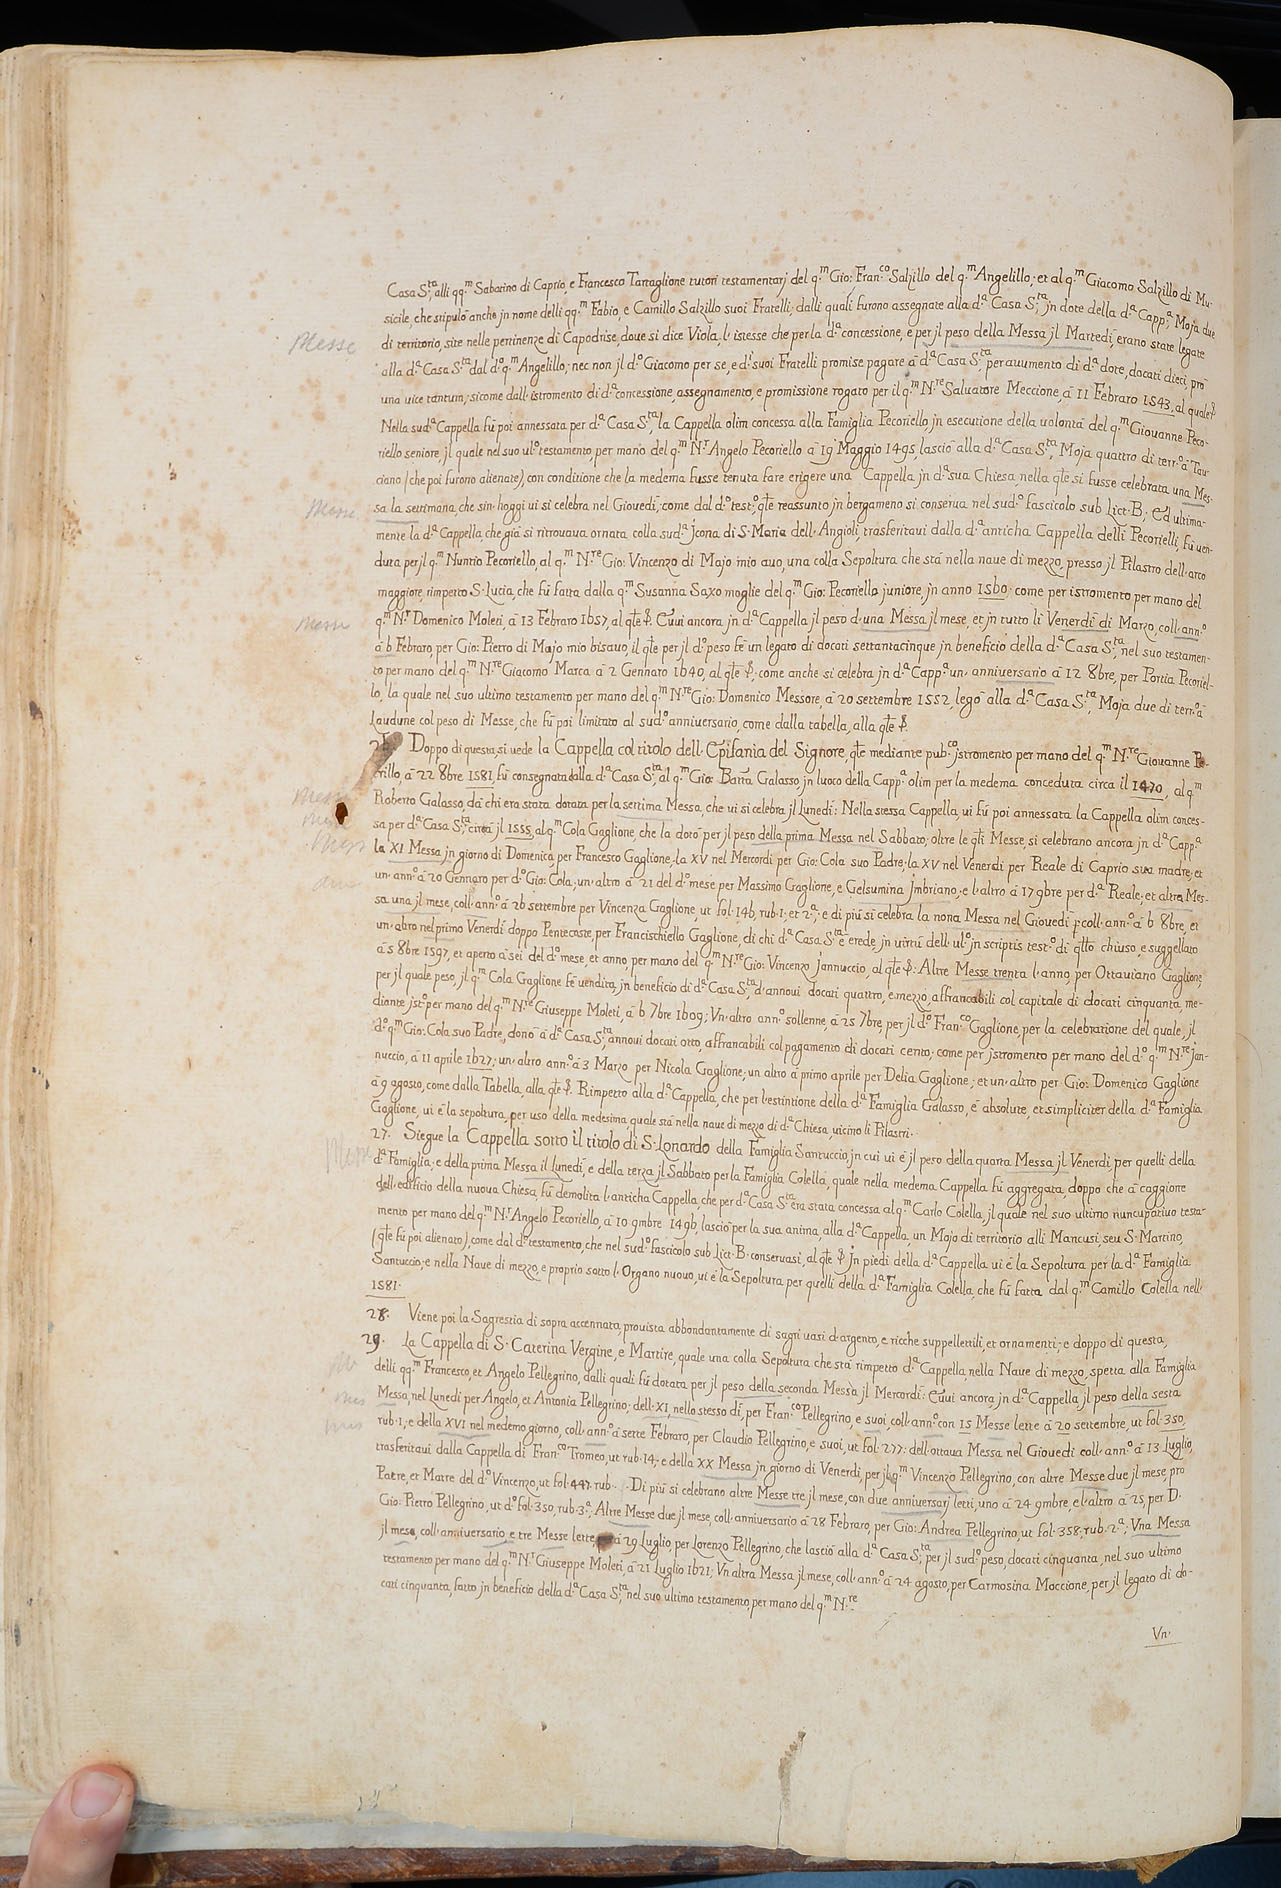 Casa S.ta, alli qq.m Sabatino di Caprio, e Francesco Tartaglione tutori testamentarj del q.m Gio: Fran.co Salzillo del q.m Angelillo; et al q.m Giacomo Salzillo di Mu-
sicile, che stipulò anche jn nome delli qq.m Fabio, e Camillo Salzillo suoi Fratelli; dalli quali furono assegnate alla d.a Casa S.ta, jn dote della d.a Capp.a, Moja due
di territorio, site nelle pertinenze di Capodrise, doue si dice Viola, l'istesse che per la d.a concessione, e per jl peso della Messa jl Martedì, erano state legate
Messe
alla d.a Casa S.ta dal d.o q.m Angelillo; nec non jl d.o Giacomo per se, e d.i suoi Fratelli promise pagare à d.a Casa S.ta per auumento di d.a dote, docati dieci, pro
una uice tantum; sicome dall'istromento di d.a concessione, assegnamento, e promissione rogato per il q.m N.re Saluatore Meccione, à 11 Febraro 1543, al quale
Nella sud.a Cappella fù poi annessata per d.a Casa S.ta, la Cappella olim concessa alla Famiglia Pecoriello, jn esecutione della uolontà del q.m Giouanne Peco-
riello seniore, jl quale nel suo ul.o testamento, per mano del q.m N.r Angelo Pecoriello à 19 Maggio 1495, lasciò alla d.a Casa S.ta, Moja quattro di terr.o à Tau-
ciano (che poi furono alienate), con conditione che la medema fusse tenuta fare erigere una Cappella jn d.a sua Chiesa, nella qle si fusse celebrata una Mes-
Messe
sa la settimana, che sin'hoggi ui si celebra nel Giouedì; come dal d.o test.o, qle reassunto jn bergameno si conserua nel sud.o fascicolo sub Lict. B; Ed ultima-
mente la d.a Cappella, che già si ritrouaua ornata colla sud.a Jcona di S. Maria dell'Angioli, trasferitaui dalla d.a anticha Cappella delli Pecorielli, fù uen-
duta per jl q.m Nuntio Pecoriello, al q.m N.re Gio: Vincenzo di Majo mio auo, una colla Sepoltura che stà nella naue di mezzo, presso jl Pilastro dell'arco
maggiore, rimpetto S. Lucia, che fù fatta dalla q.m Susanna Saxo moglie del q.m Gio: Pecoriello juniore, jn anno 1560; come per istromento per mano del
Messe
q.m N.r Domenico Moleti, à 13 Febraro 1657, al qle. Euui ancora jn d.a Cappella jl peso d'una Messa jl mese, et jn tutto li Venerdì di Marzo, coll'ann.o
à 6 Febraro, per Gio: Pietro di Majo mio bisauo, il qle per jl d.o peso fè un legato di docati settantacinque jn beneficio della d.a Casa S.ta, nel suo testamen-
to per mano del q.m N.re Giacomo Marca à 2 Gennaro 1640, al qle; come anche si celebra jn d.a Capp.a un'anniuersario à 12 8bre, per Portia Pecoriel-
lo, la quale nel suo ultimo testamento per mano del q.m N.re Gio: Domenico Messore, à 20 settembre 1552, legò alla d.a Casa S.ta, Moja due di terr.o à
Laudune col peso di Messe, che fù poi limitato al sud.o anniuersario, come dalla tabella, alla qle.
Doppo di questa, si uede la Cappella col titolo dell'Epifania del Signore, qle mediante pub.co jstromento per mano del q.m N.re Giouanne Pe-
trillo, à 22 8bre 1581, fù consegnata dalla d.a Casa S.ta, al q.m Gio: Batta Galasso, jn luoco della Capp.a olim per la medema conceduta circa il 1470, al q.m
Messe
Roberto Galasso, da chi era stata dotata per la settima Messa, che ui si celebra jl Lunedì: Nella stessa Cappella, ui fù poi annessata la Cappella olim conces-
sa per d.a Casa S.ta, circa jl 1555, al q.m Cola Gaglione, che la dotò per jl peso della prima Messa nel Sabbato; oltre le qli Messe, si celebrano ancora jn d.a Capp.a
la XI Messa jn giorno di Domenica, per Francesco Gaglione; la XV nel Mercordì per Gio: Cola suo Padre; la XV nel Venerdì per Reale di Caprio sua madre; et
un'ann.o à 20 Gennaro per d.o Gio: Cola; un'altro à 21 del d.o mese per Massimo Gaglione, e Gelsumina Jmbriano; e l'altro à 17 9bre per d.a Reale; et altra Mes-
sa una jl mese, coll'ann.o à 26 settembre per Vincenza Gaglione, ut fol. 146, rub. 1; et 2.a; e di più si celebra la nona Messa nel Giouedì coll'ann.o à 6 8bre, et
un'altro nel primo Venerdì doppo Pentecoste, per Francischiello Gaglione, di chi d.a Casa S.ta è erede, jn uirtù dell'ul.o jn scriptis test.o di qllo chiuso, e suggellato
à 5 8bre 1597, et aperto à sei del d.o mese, et anno, per mano del q.m N.re Gio: Vincenzo Jannuccio, al qle: Altre Messe trenta l'anno, per Ottauiano Gaglione,
per jl quale peso, jl q.m Cola Gaglione fè uendita, jn beneficio di d.a Casa S.ta, d'annoui docati quattro, e mezzo, affrancabili col capitale di docati cinquanta, me-
diante jst.o per mano del q.m N.re Giuseppe Moleti, à 6 7bre 1609; Vn'altro ann.o sollenne, à 25 7bre, per jl d.o Fran.co Gaglione, per la celebratione del quale, jl
d.o q.m Gio: Cola suo Padre, donò à d.a Casa S.ta, annoui docati otto, affrancabili col pagamento di docati cento; come per jstromento per mano del d.o q.m N.re Jan-
nuccio, à 11 aprile 1627; un'altro ann.o à 3 Marzo per Nicola Gaglione; un'altro à primo aprile per Delia Gaglione; et un'altro per Gio: Domenico Gaglione
à 9 agosto, come dalla Tabella, alla qle. Rimpetto alla d.a Cappella, che per l'estintione della d.a Famiglia Galasso, è absolute, et simpliciter della d.a Famiglia
Gaglione, ui è la sepoltura, per uso della medesima, quale stà nella naue di mezzo di d.a Chiesa, uicino li Pilastri.
27. Siegue la Cappella sotto il titolo di S. Lonardo della Famiglia Santuccio, jn cui ui è jl peso della quarta Messa jl Venerdì, per quelli della
Messe
d.a Famiglia; e della prima Messa il Lunedì, e della terza jl Sabbato per la Famiglia Colella, quale nella medema Cappella fù aggregata, doppo che à caggione
dell'edificio della nuoua Chiesa, fù demolita l'anticha Cappella, che per d.a Casa S.ta era stata concessa al q.m Carlo Colella, jl quale nel suo ultimo nuncupatiuo testa-
mento per mano del q.m N.r Angelo Pecoriello, à 10 9mbre 1496, lasciò per la sua anima, alla d.a Cappella, un Mojo di territorio alli Mancusi, seu S. Martino,
(qle fù poi alienato), come dal d.o testamento, che nel sud.o fascicolo sub Lict. B. conseruasi, al qle. Jn piedi della d.a Cappella ui è la Sepoltura per la d.a Famiglia
Santuccio; e nella Naue di mezzo, e proprio sotto l'Organo nuouo, ui è la Sepoltura per quelli della d.a Famiglia Colella, che fù fatta dal q.m Camillo Colella nell'
1581.
28. Viene poi la Sagrestia di sopra accennata, prouista abbondantemente di sagri uasi d'argento, e ricche suppellettili, et ornamenti; e doppo di questa,
29. La Cappella di S. Caterina Vergine, e Martire, quale una colla Sepoltura che stà rimpetto d.a Cappella, nella Naue di mezzo, spetta alla Famiglia
delli qq.m Francesco, et Angelo Pellegrino, dalli quali fù dotata per jl peso della seconda Messa jl Mercordì: Euui ancora, jn d.a Cappella, jl peso della sesta
Messa, nel Lunedì per Angelo, et Antonia Pellegrino; dell'XI, nello stesso dì, per Fran.co Pellegrino, e suoi, coll'ann.o con 15 Messe lette à 20 settembre, ut fol. 350,
rub. 1; e della XVI nel medemo giorno, coll'ann.o à sette Febraro, per Claudio Pellegrino, e suoi, ut fol. 277; dell'ottaua Messa nel Giouedì coll'ann.o à 13 Luglio,
trasferitaui dalla Cappella di Fran.co Tromeo, ut rub. 14; e della XX Messa jn giorno di Venerdì, per jl q.m Vincenzo Pellegrino, con altre Messe due jl mese, pro
Patre, et Matre del d.o Vincenzo, ut fol. 447. rub. . Di più si celebrano altre Messe tre jl mese, con due anniuersarj letti, uno à 24 9mbre, e l'altro à 25, per D.
Gio: Pietro Pellegrino, ut d.o fol. 350, rub. 3.a; Altre Messe due jl mese, coll'anniuersario à 28 Febraro, per Gio: Andrea Pellegrino, ut fol. 358, rub. 2.a; Vna Messa
jl mese, coll'anniuersario e tre Messe lette, à 29 Luglio, per Lorenzo Pellegrino, che lasciò alla d.a Casa S.ta, per jl sud.o peso, docati cinquanta, nel suo ultimo
testamento per mano del q.m N.r Giuseppe Moleti, à 21 Luglio 1621; Vn'altra Messa jl mese, coll'ann.o à 24 agosto, per Carmosina Moccione, per jl legato di do-
cati cinquanta, fatto jn beneficio della d.a Casa S.ta, nel suo ultimo testamento, per mano del q.m N.re
Vn'